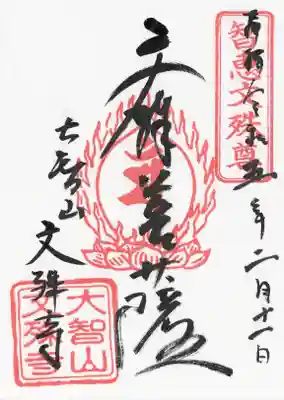 智恵文殊尊
令和五年二月十一日
文殊菩薩
大智山
文殊寺
大智山
文殊寺